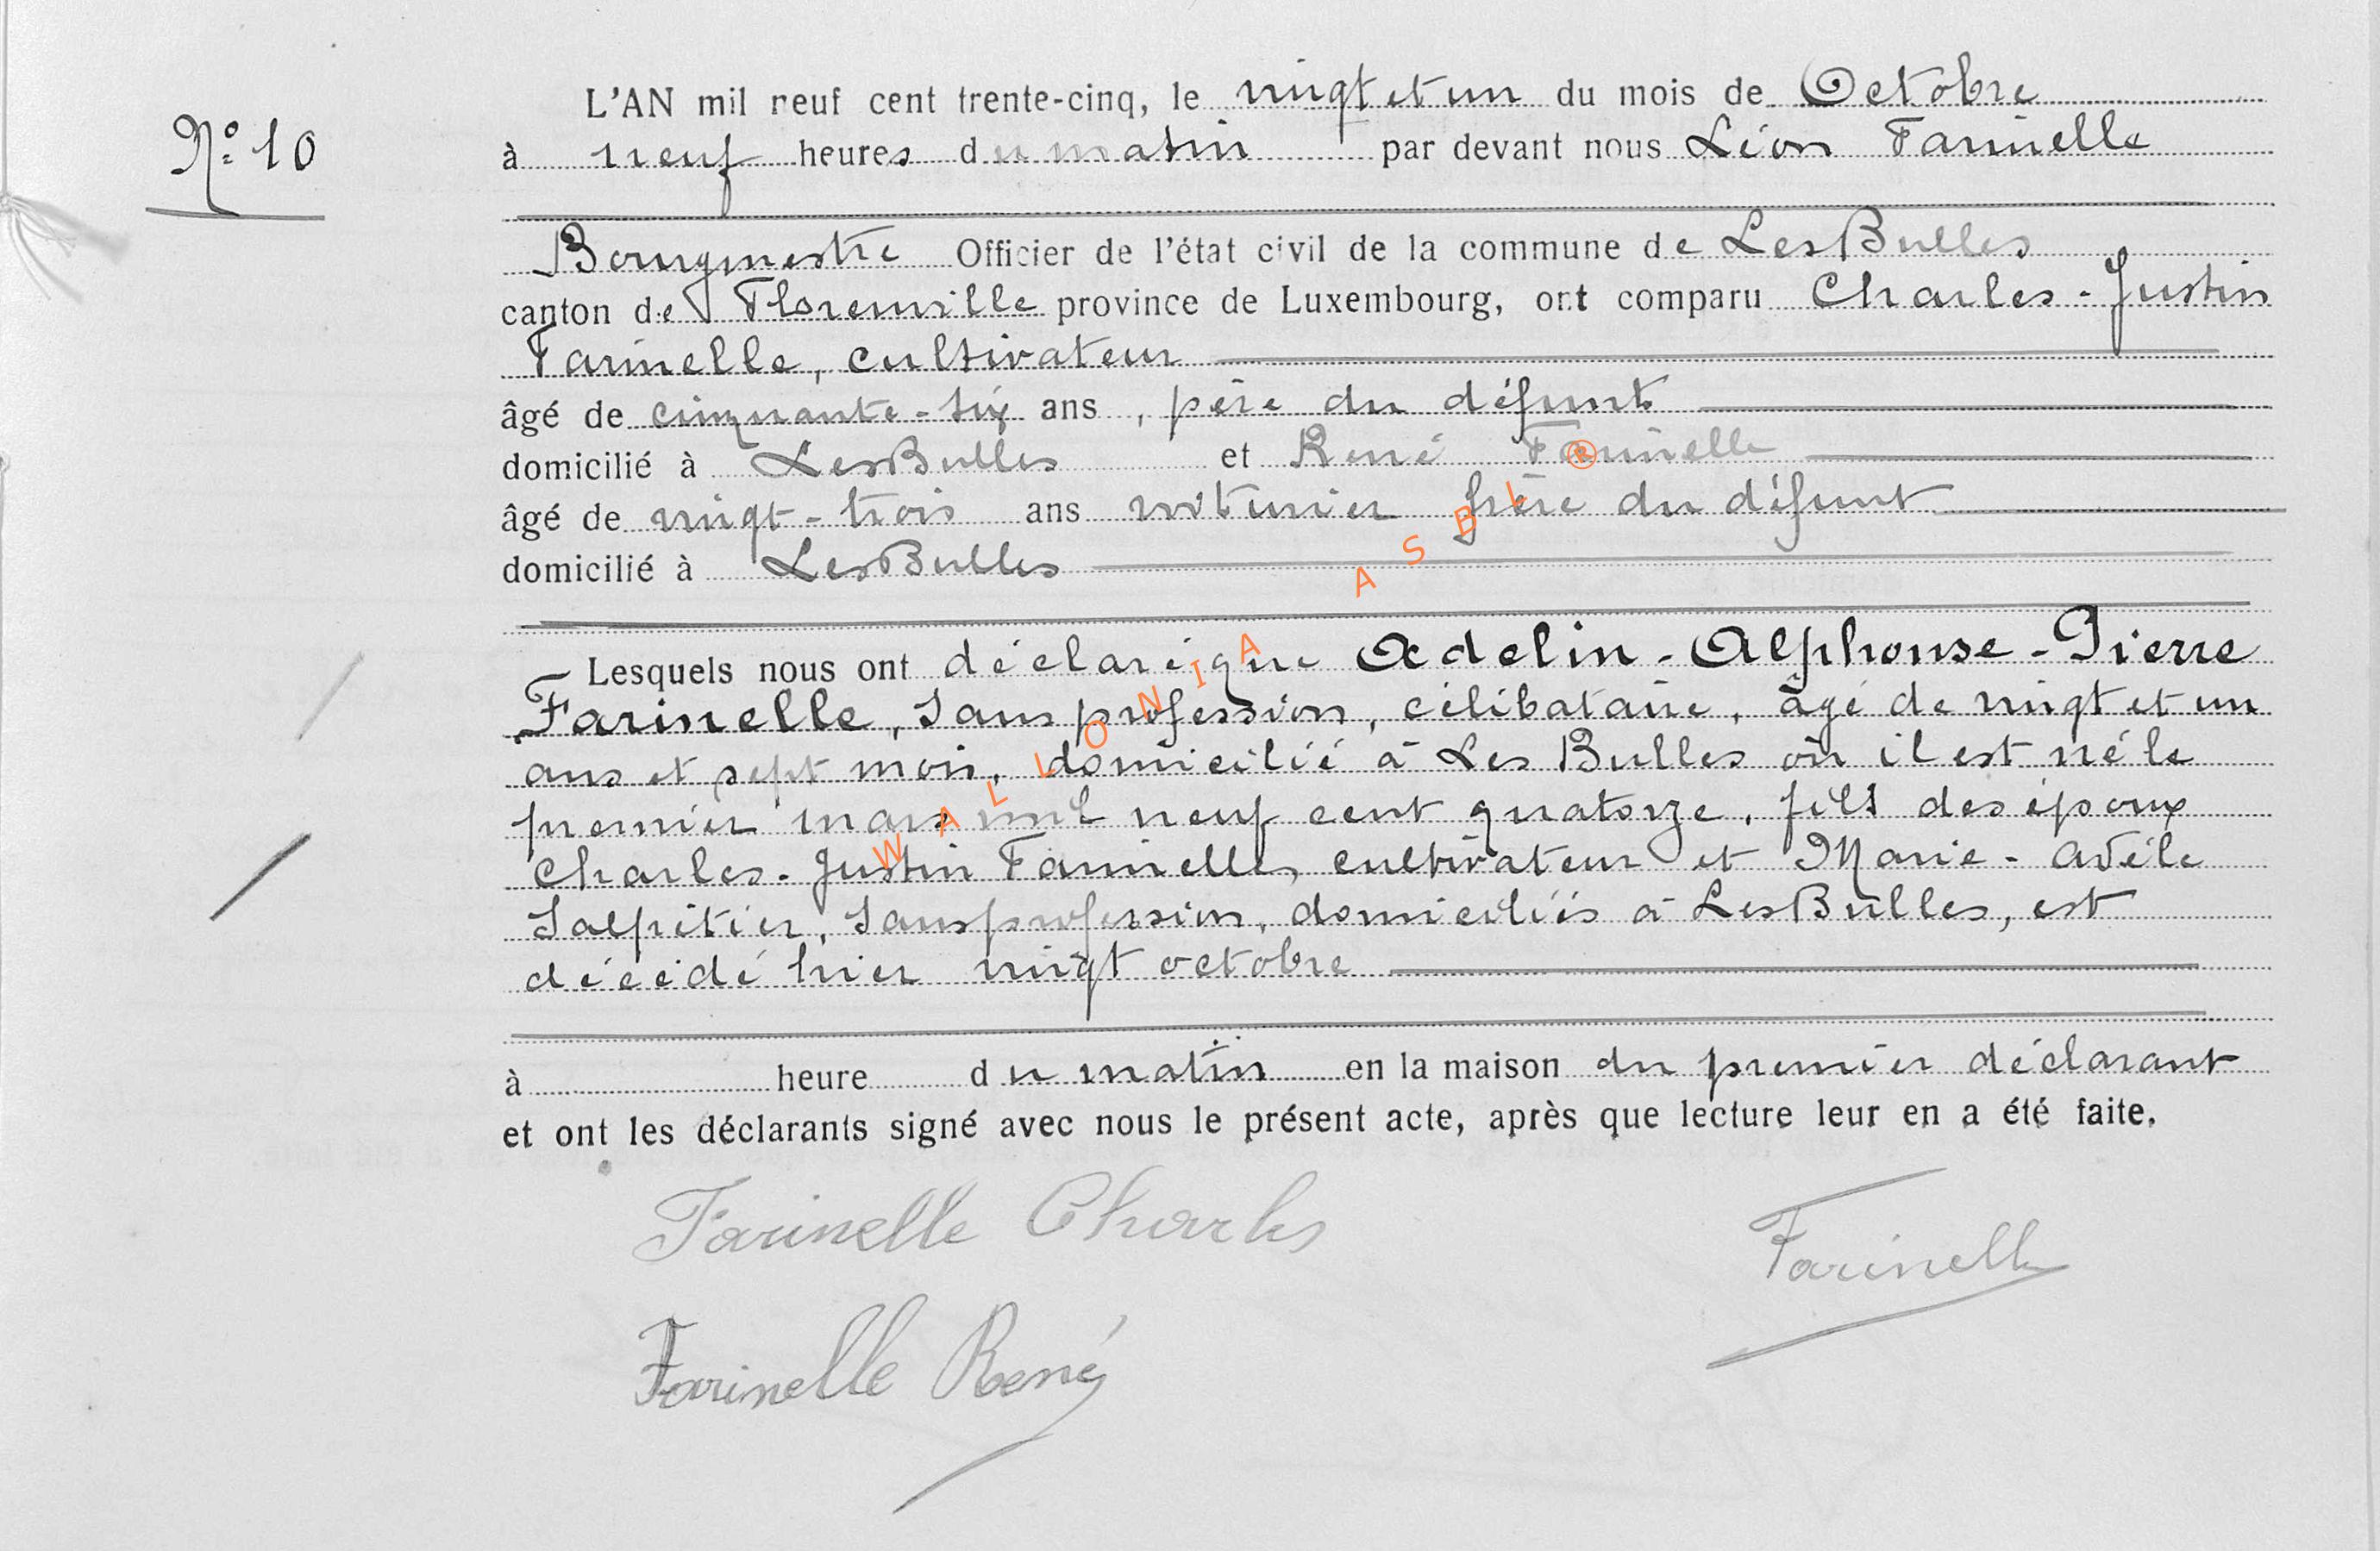 N° 10
L'AN mil neuf cent trente-cinq, le vingt et un du mois de Octobre
à neuf heures du matin par devant nous Léon Farinelle
Bourgmestre Officier de l'état civil de la commune de Les Bulles
canton de Florenville province de Luxembourg, ont comparu Charles-Justin
Farinelle, cultivateur
âgé de cinquante-six ans, père du défunt
domicilié à Les Bulles et René Farinelle
âgé de vingt-trois ans frère du défunt
domicilié à Les Bulles
Lesquels nous ont déclaré que Adelin-Alphonse-Pierre
Farinelle, sans profession, célibataire, âgé de vingt et un
ans et sept mois, domicilié à Les Bulles où il est né le
premier mars mil neuf cent quatorze, fils des époux
Charles-Justin Farinelle, cultivateur et Marie-Adèle
Salpêtier, sans profession, domiciliés à Les Bulles, est
décédé hier vingt octobre
à heure du matin en la maison du premier déclarant
et ont les déclarants signé avec nous le présent acte, après que lecture leur en a été faite.
Farinelle Charles
Farinelle
Farinelle René
WALLONIA ASBL ®